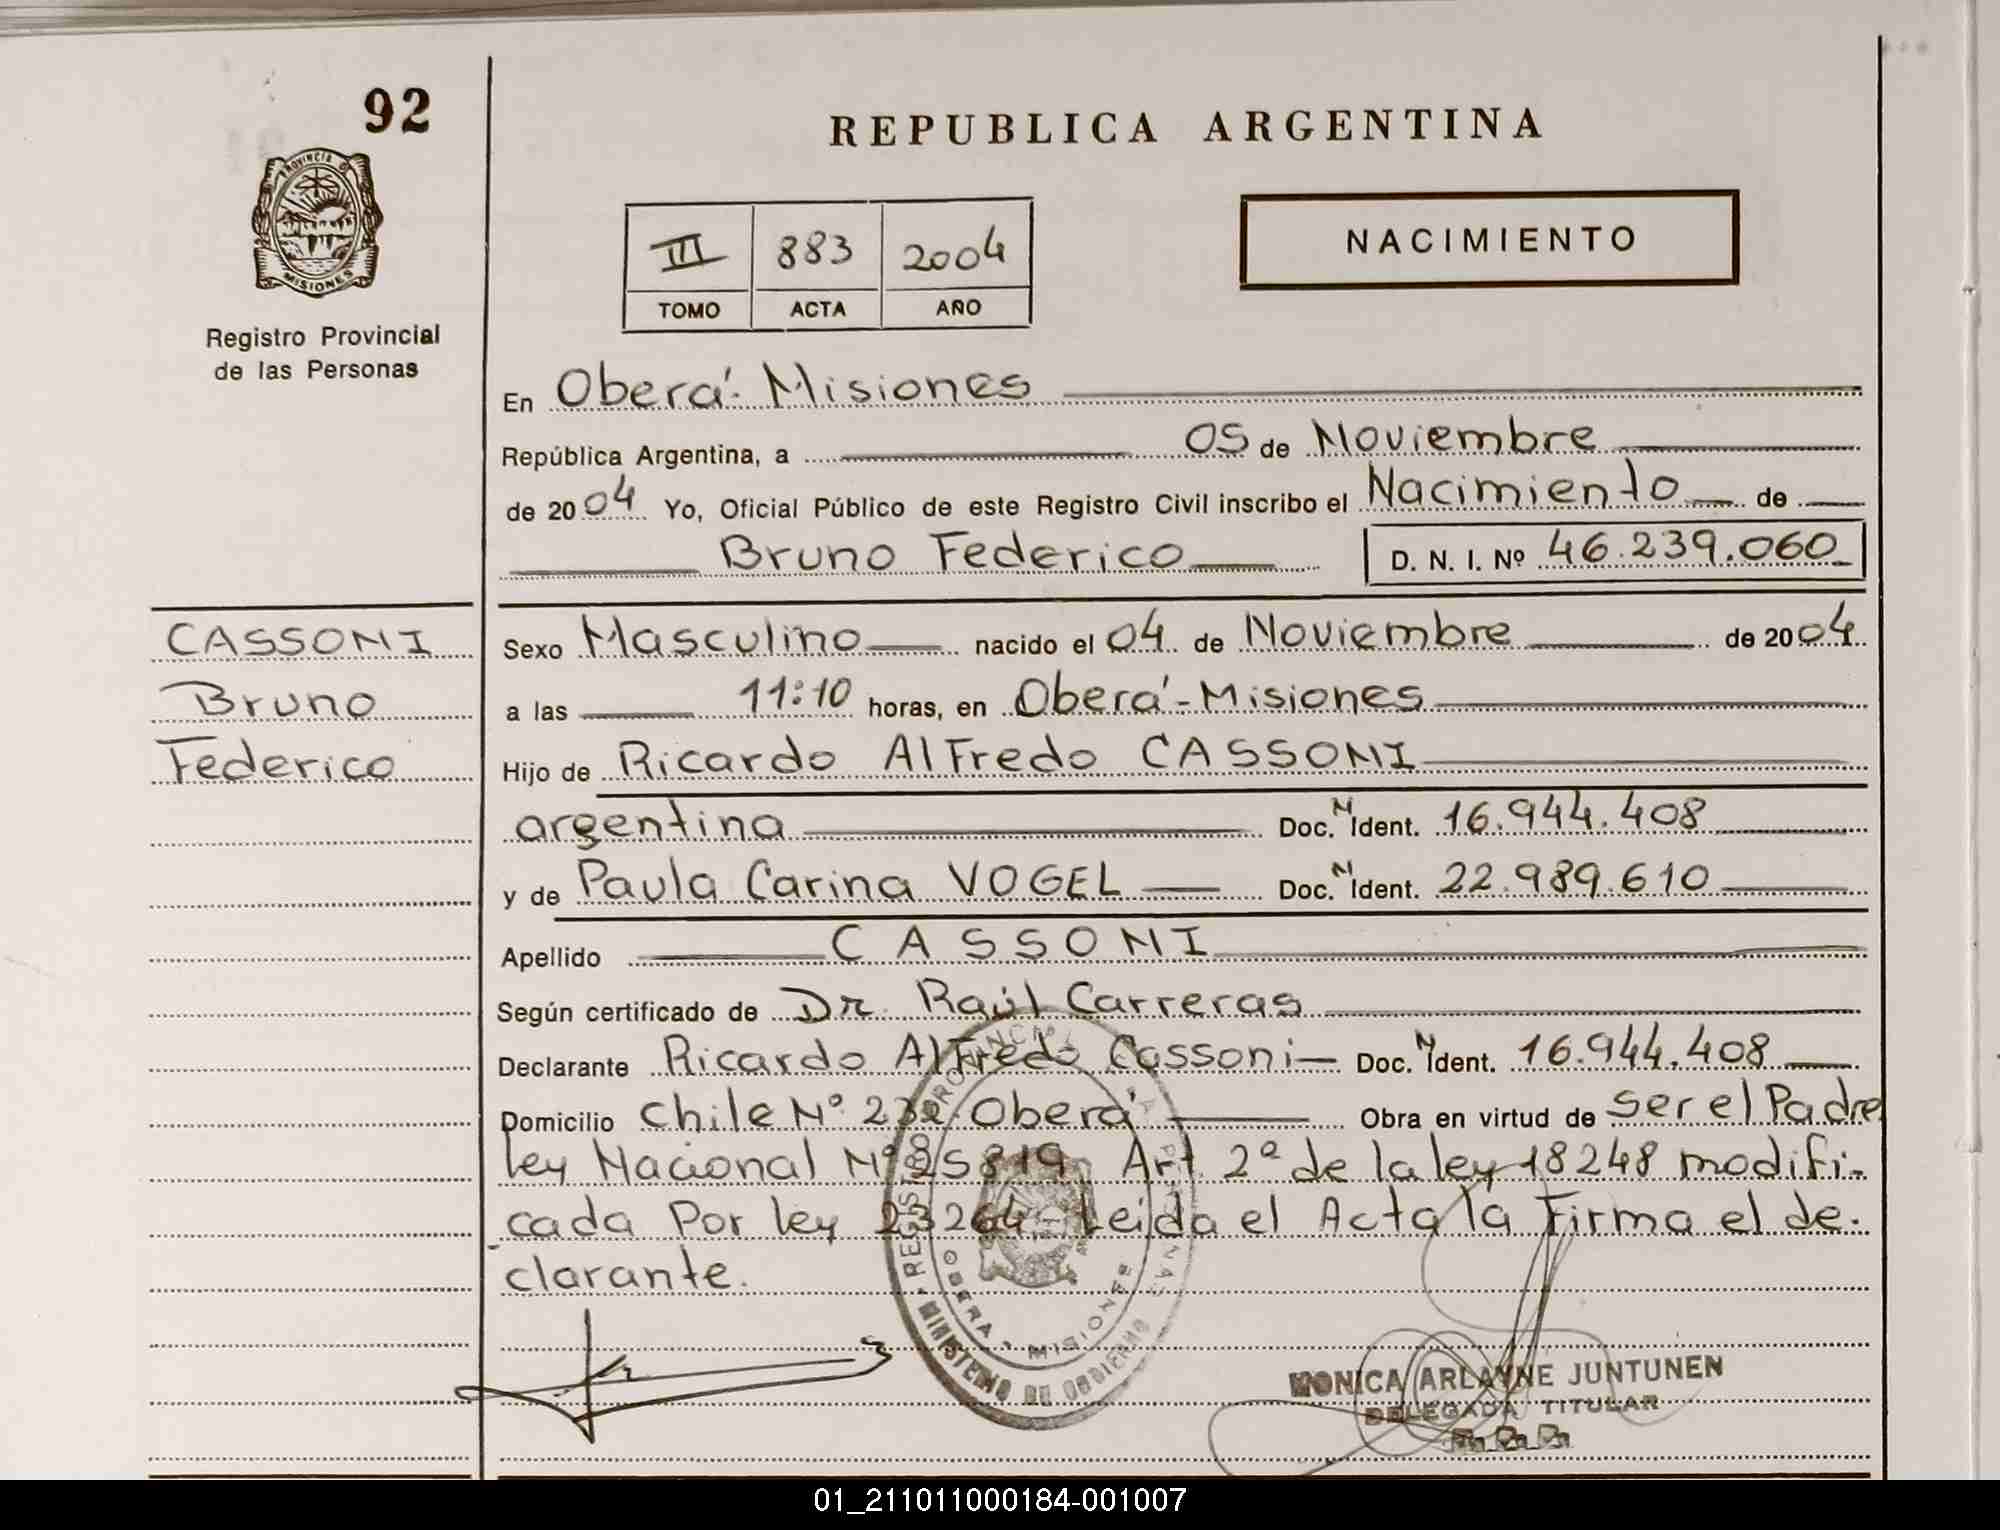 92
REPUBLICA ARGENTINA
PROVINCIA D
MISIONES
Registro Provincial
de las Personas
III 883 2004
TOMO ACTA AÑO
NACIMIENTO
En Oberá - Misiones
República Argentina, a 05 de Noviembre
de 2004 Yo, Oficial Público de este Registro Civil inscribo el Nacimiento de
Bruno Federico D. N. I. Nº 46.239.060
CASSONI
Bruno
Federico
Sexo Masculino nacido el 04 de Noviembre de 2004
a las 11:10 horas, en Oberá - Misiones
Hijo de Ricardo Alfredo CASSONI
argentina Doc. N Ident. 16.944.408
y de Paula Carina VOGEL Doc. N Ident. 22.989.610
Apellido CASSONI
Según certificado de Dr. Raúl Carreras
Declarante Ricardo Alfredo Cassoni Doc. N Ident. 16.944.408
Domicilio Chile Nº 232 - Oberá Obra en virtud de ser el Padre
Ley Nacional Nº 25819 Art. 2º de la ley 18248 modifi-
cada Por ley 23264 Leida el Acta la Firma el de-
clarante.
REGISTRO PROVINCIAL
OBERA - MISIONES
MINISTERIO DE GOBIERNO
MONICA ARLAYNE JUNTUNEN
DELEGADA TITULAR
01_211011000184-001007